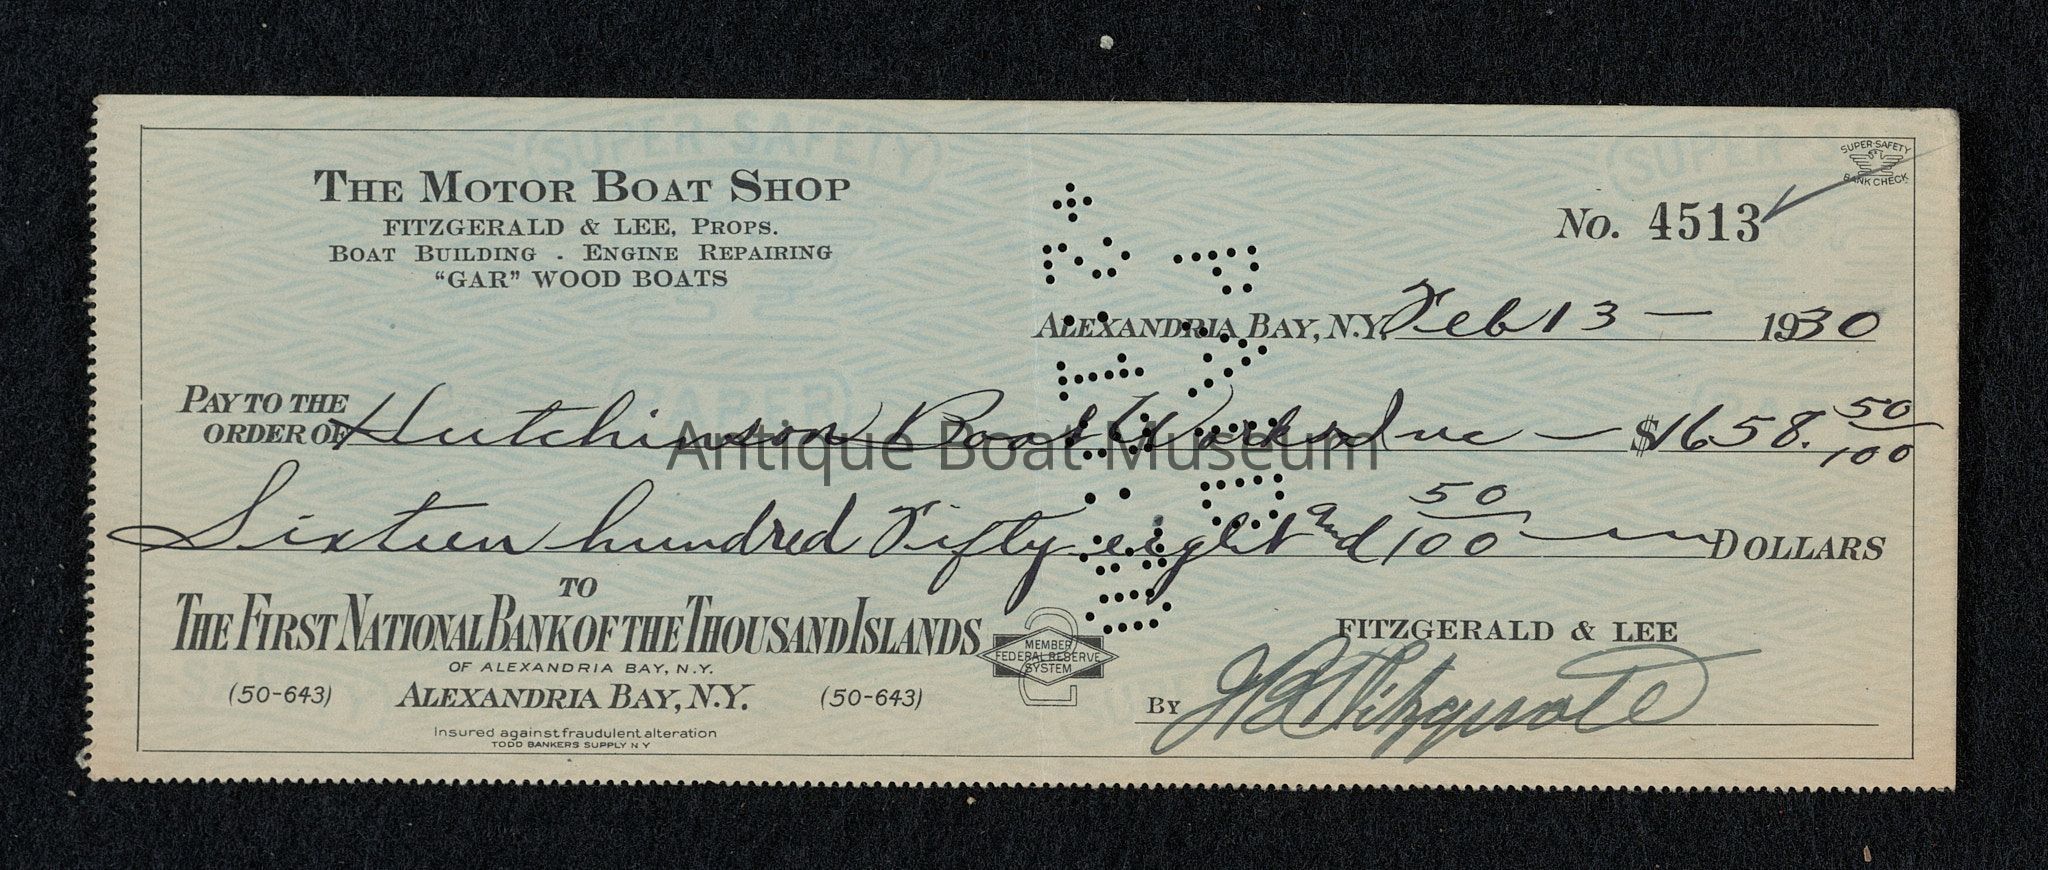 SUPER-SAFETY
SUPER-SAFETY
BANK CHECK
THE MOTOR BOAT SHOP
FITZGERALD & LEE, PROPS.
BOAT BUILDING - ENGINE REPAIRING
"GAR" WOOD BOATS
No. 4513
ALEXANDRIA BAY, N.Y. Feb 13 — 1930
PAY TO THE ORDER OF Hutchinson Boat Works Inc — $1658. 50/100
Antique Boat Museum
Sixteen hundred Fifty eight and 50/100 DOLLARS
TO
THE FIRST NATIONAL BANK OF THE THOUSAND ISLANDS
OF ALEXANDRIA BAY, N.Y.
(50-643) ALEXANDRIA BAY, N.Y. (50-643)
Insured against fraudulent alteration
TODD BANKERS SUPPLY N Y
MEMBER
FEDERAL RESERVE
SYSTEM
2
FITZGERALD & LEE
BY